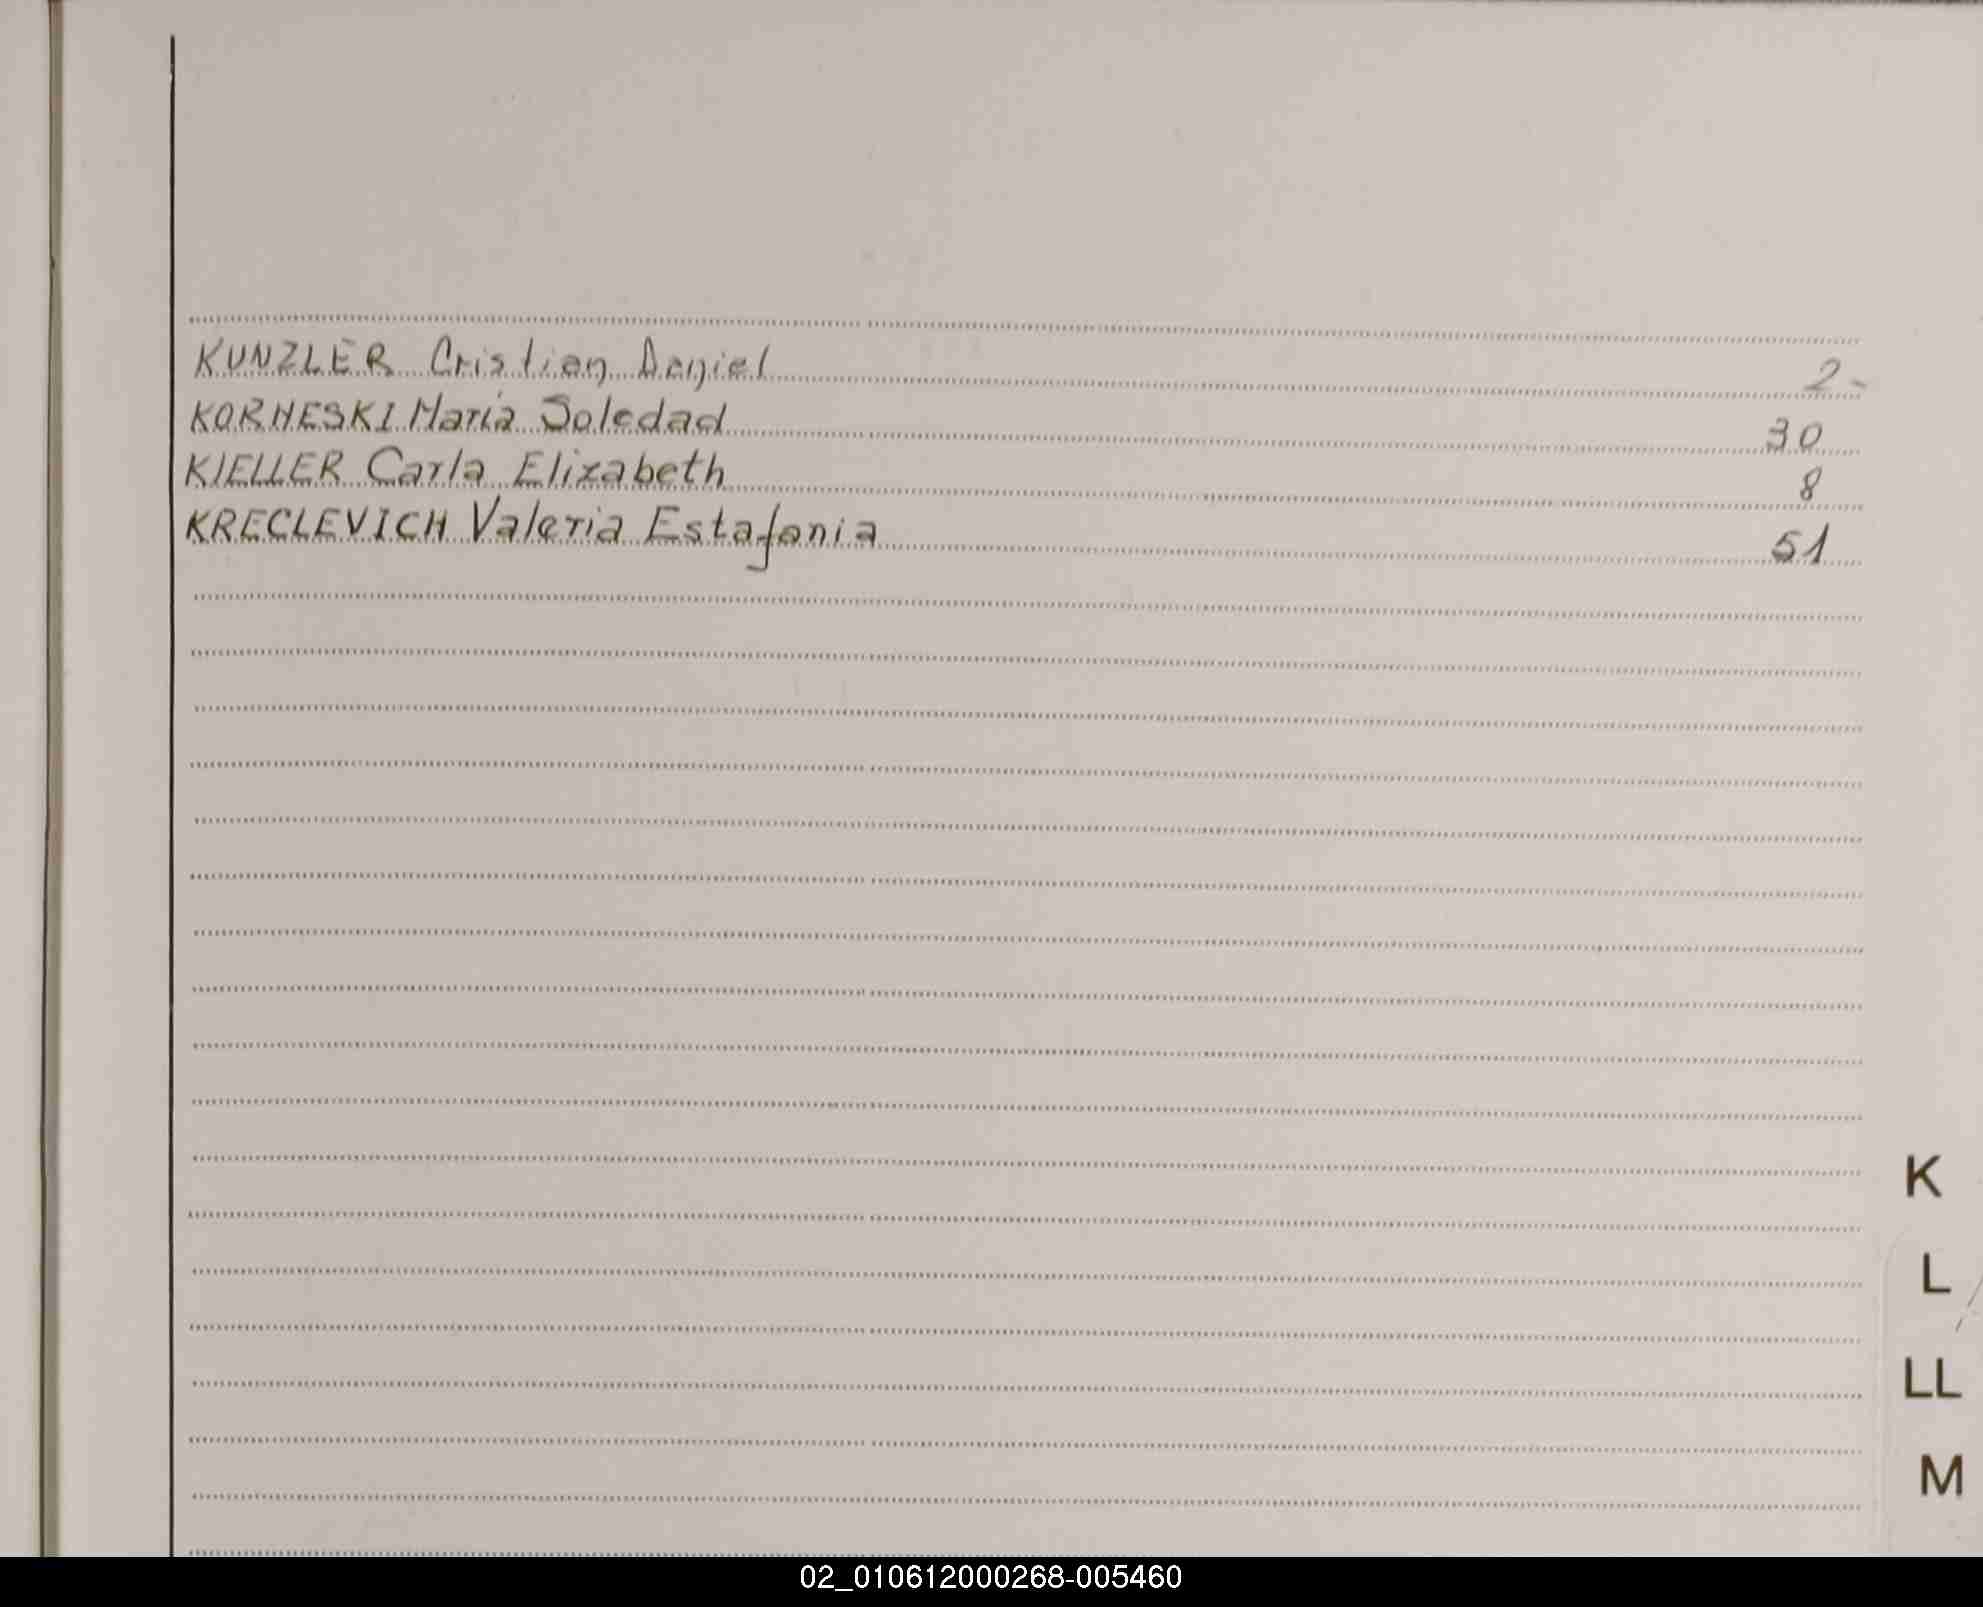 KUNZLER Cristian Daniel 2-
KORNESKI María Soledad 30
KIELLER Carla Elizabeth 8
KRECLEVICH Valeria Estafania 51
K
L
LL
M
02_010612000268-005460